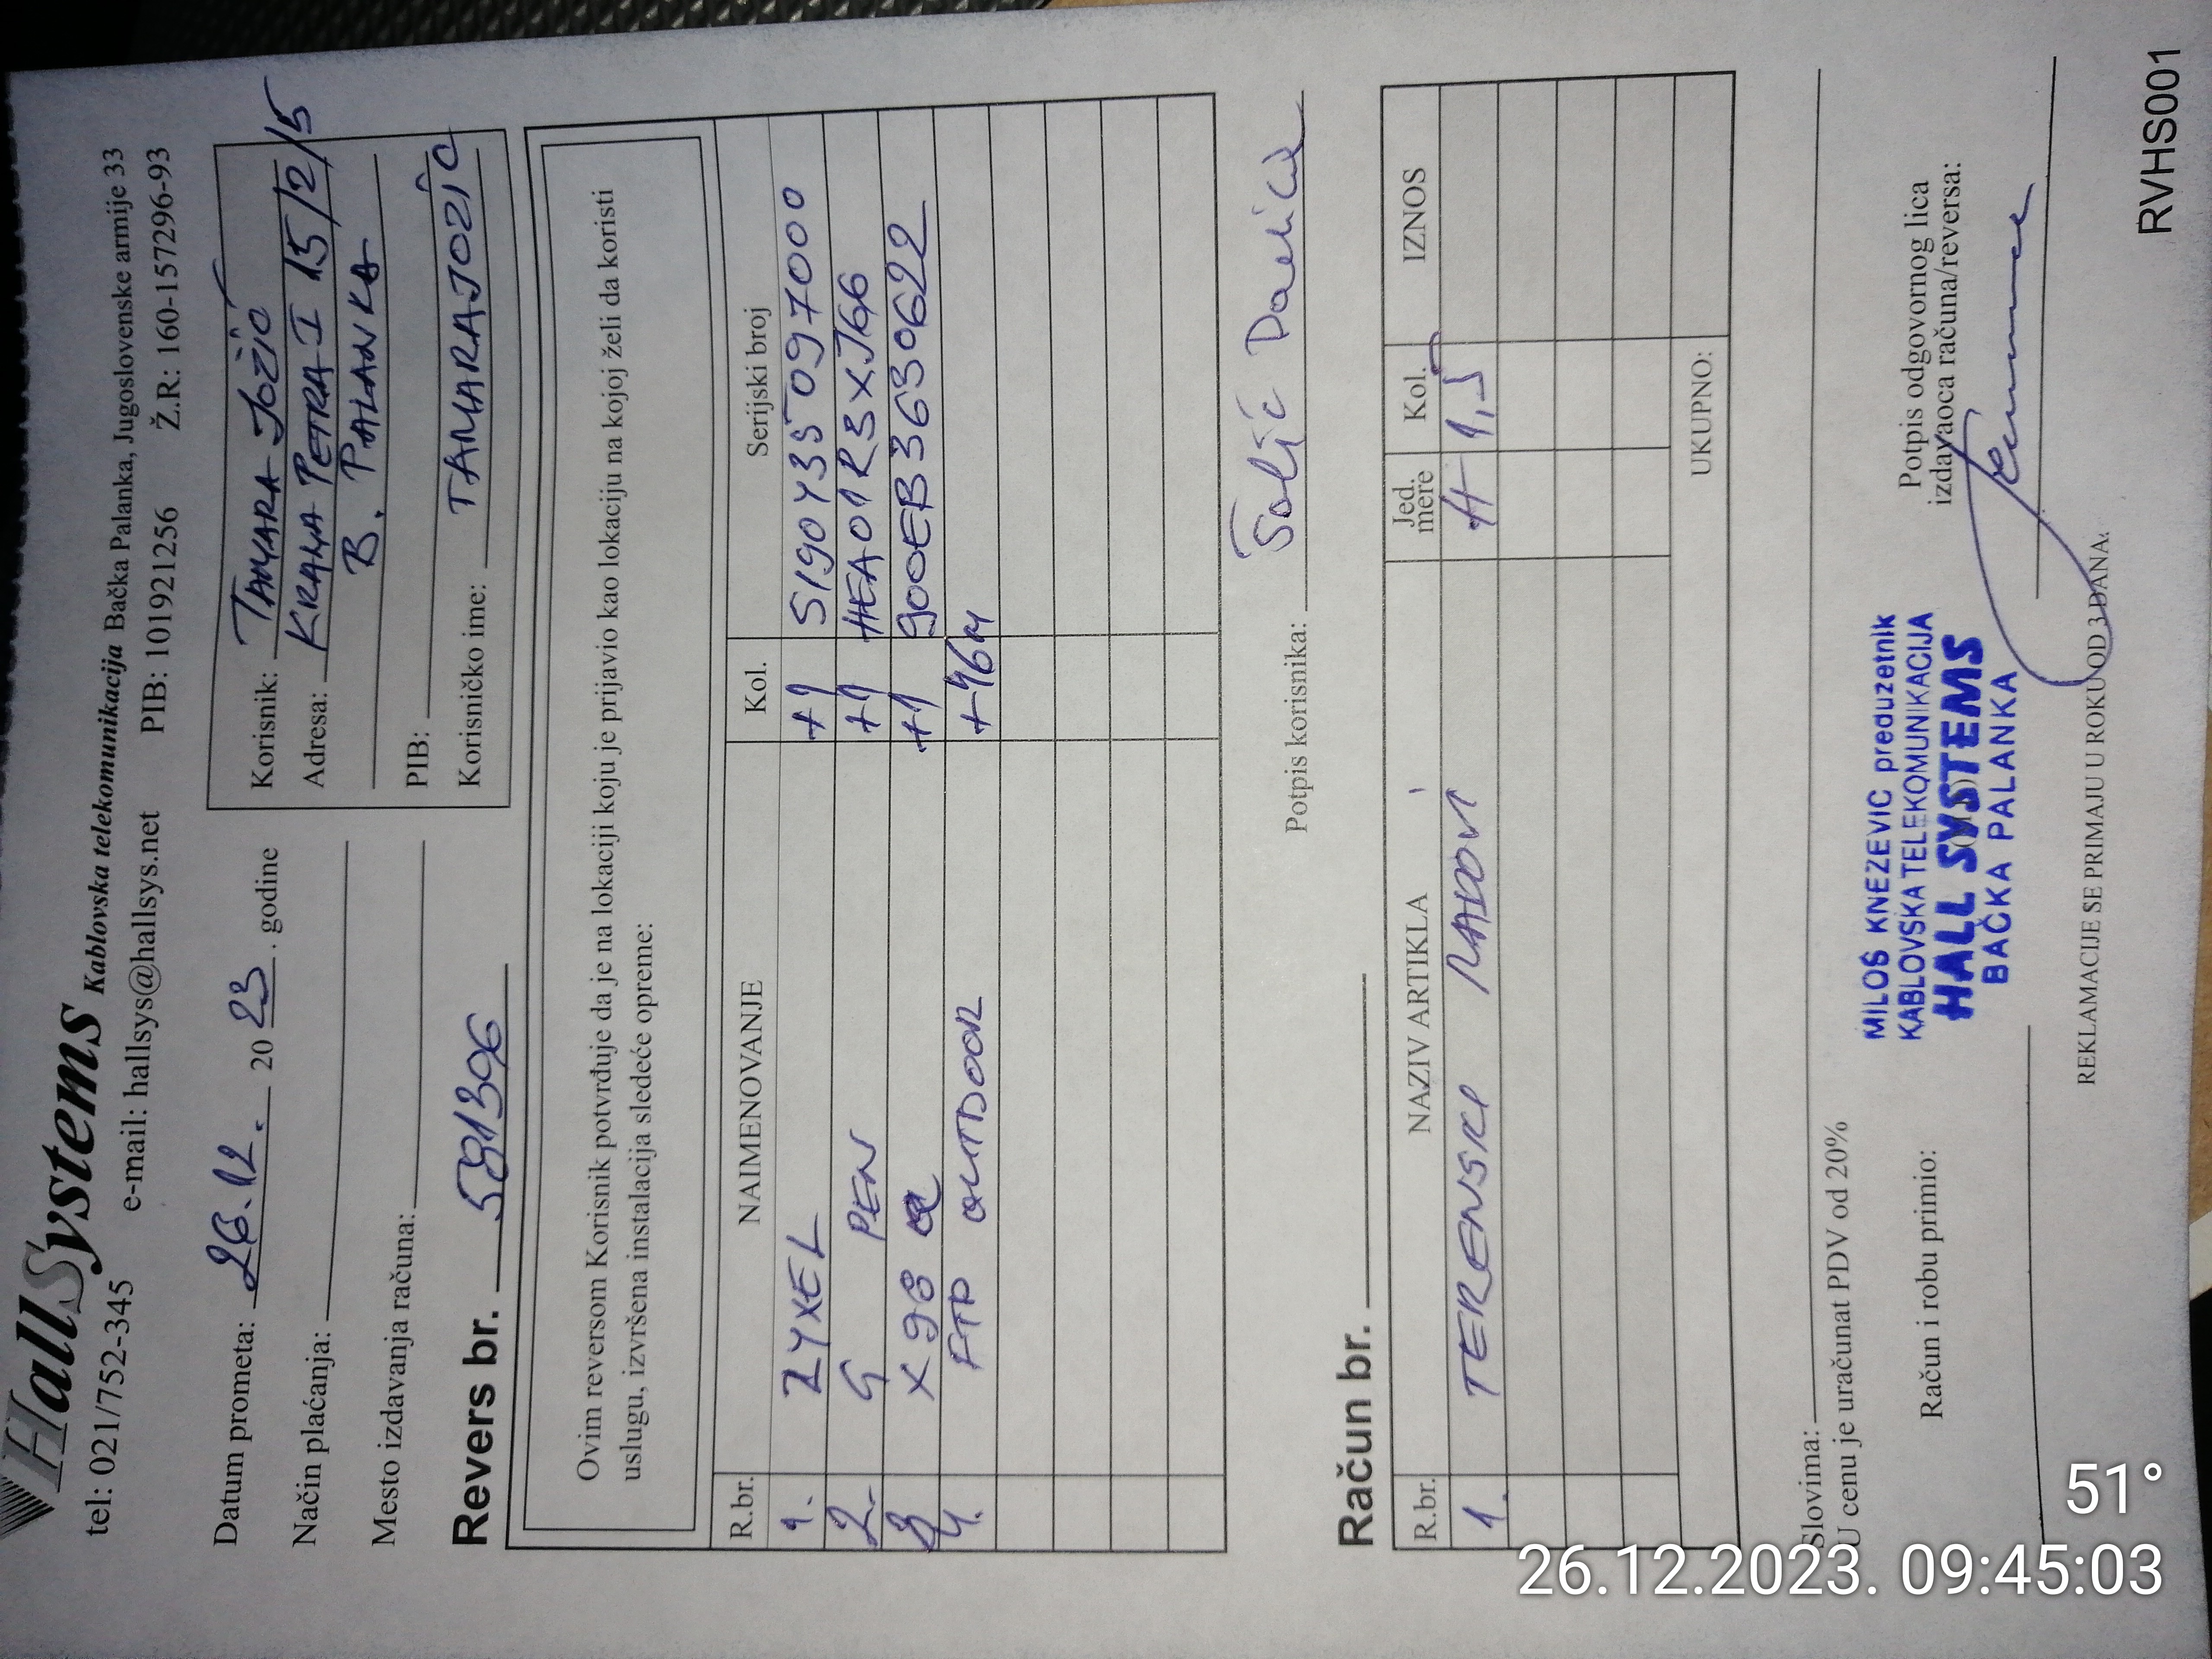 HallSystems Kablovska telekomunikacija Bačka Palanka, Jugoslovenske armije 33
tel: 021/752-345 e-mail: hallsys@hallsys.net PIB: 101921256 Ž.R: 160-157296-93
Datum prometa: 26.12. 2023. godine
Način plaćanja:
Mesto izdavanja računa:
Korisnik: TAMARA JOŽIĆ
Adresa: KRALJA PETRA I 15/2/5
B. PALANKA
PIB:
Korisničko ime: TAMARAJOZIC
Revers br. 581396
Ovim reversom Korisnik potvrđuje da je na lokaciji koju je prijavio kao lokaciju na kojoj želi da koristi
uslugu, izvršena instalacija sledeće opreme:
R.br. NAIMENOVANJE Kol. Serijski broj
1. ZYXEL +1 S190Y35097000
2. G PEN +1 HEA01R3XJ66
3 X98 Q +1 900EB3630622
4. FTP OUTDOOR +46m
Potpis korisnika:
Račun br.
R.br. NAZIV ARTIKLA Jed. mere Kol. IZNOS
1. TERENSKI RADOVI H 1,5
UKUPNO:
Slovima:
U cenu je uračunat PDV od 20%
Račun i robu primio:
MILOŠ KNEZEVIC preduzetnik
KABLOVSKA TELEKOMUNIKACIJA
HALL SYSTEMS
BAČKA PALANKA
Potpis odgovornog lica
izdavaoca računa/reversa:
REKLAMACIJE SE PRIMAJU U ROKU OD 3 DANA.
RVHS001
51°
26.12.2023. 09:45:03